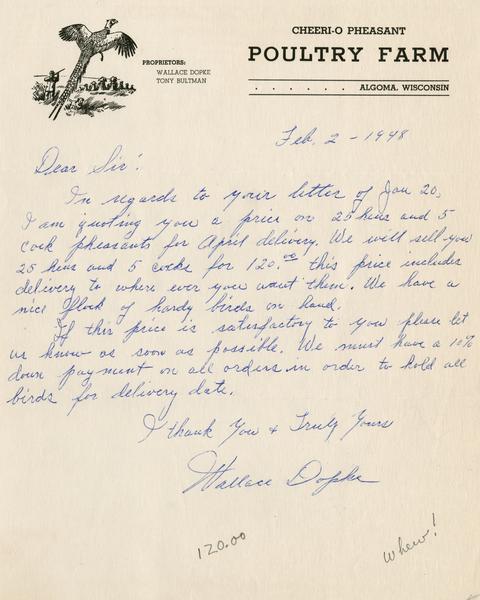 CHEERI-O PHEASANT
POULTRY FARM
PROPRIETORS:
WALLACE DOPKE
TONY BULTMAN
. . . . . . ALGOMA, WISCONSIN
Feb. 2 - 1948
Dear Sir:
In regards to your letter of Jan 20,
I am quoting you a price on 25 hens and 5
cock pheasants for April delivery. We will sell you
25 hens and 5 cocks for 120.00 this price includes
delivery to where ever you want them. We have a
nice flock of hardy birds on hand.
If this price is satisfactory to you please let
us know as soon as possible. We must have a 10%
down payment on all orders in order to hold all
birds for delivery date.
I thank You & Truly Yours
Wallace Dopke
120.00
whew!